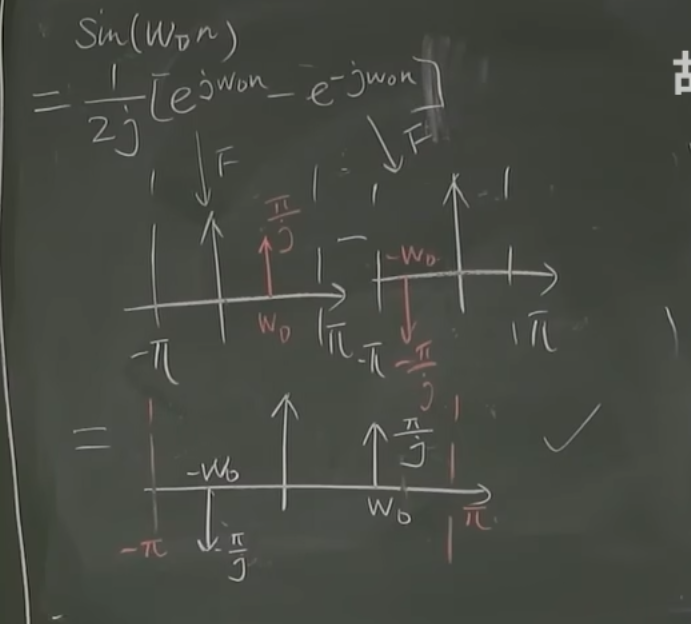 Sin(W₀n)
= 1/2j [e^jw₀n - e^-jw₀n]
F F
π/j
- -W₀
W₀
-π π -π -π/j π
=
-W₀ π/j
W₀
-π -π/j π